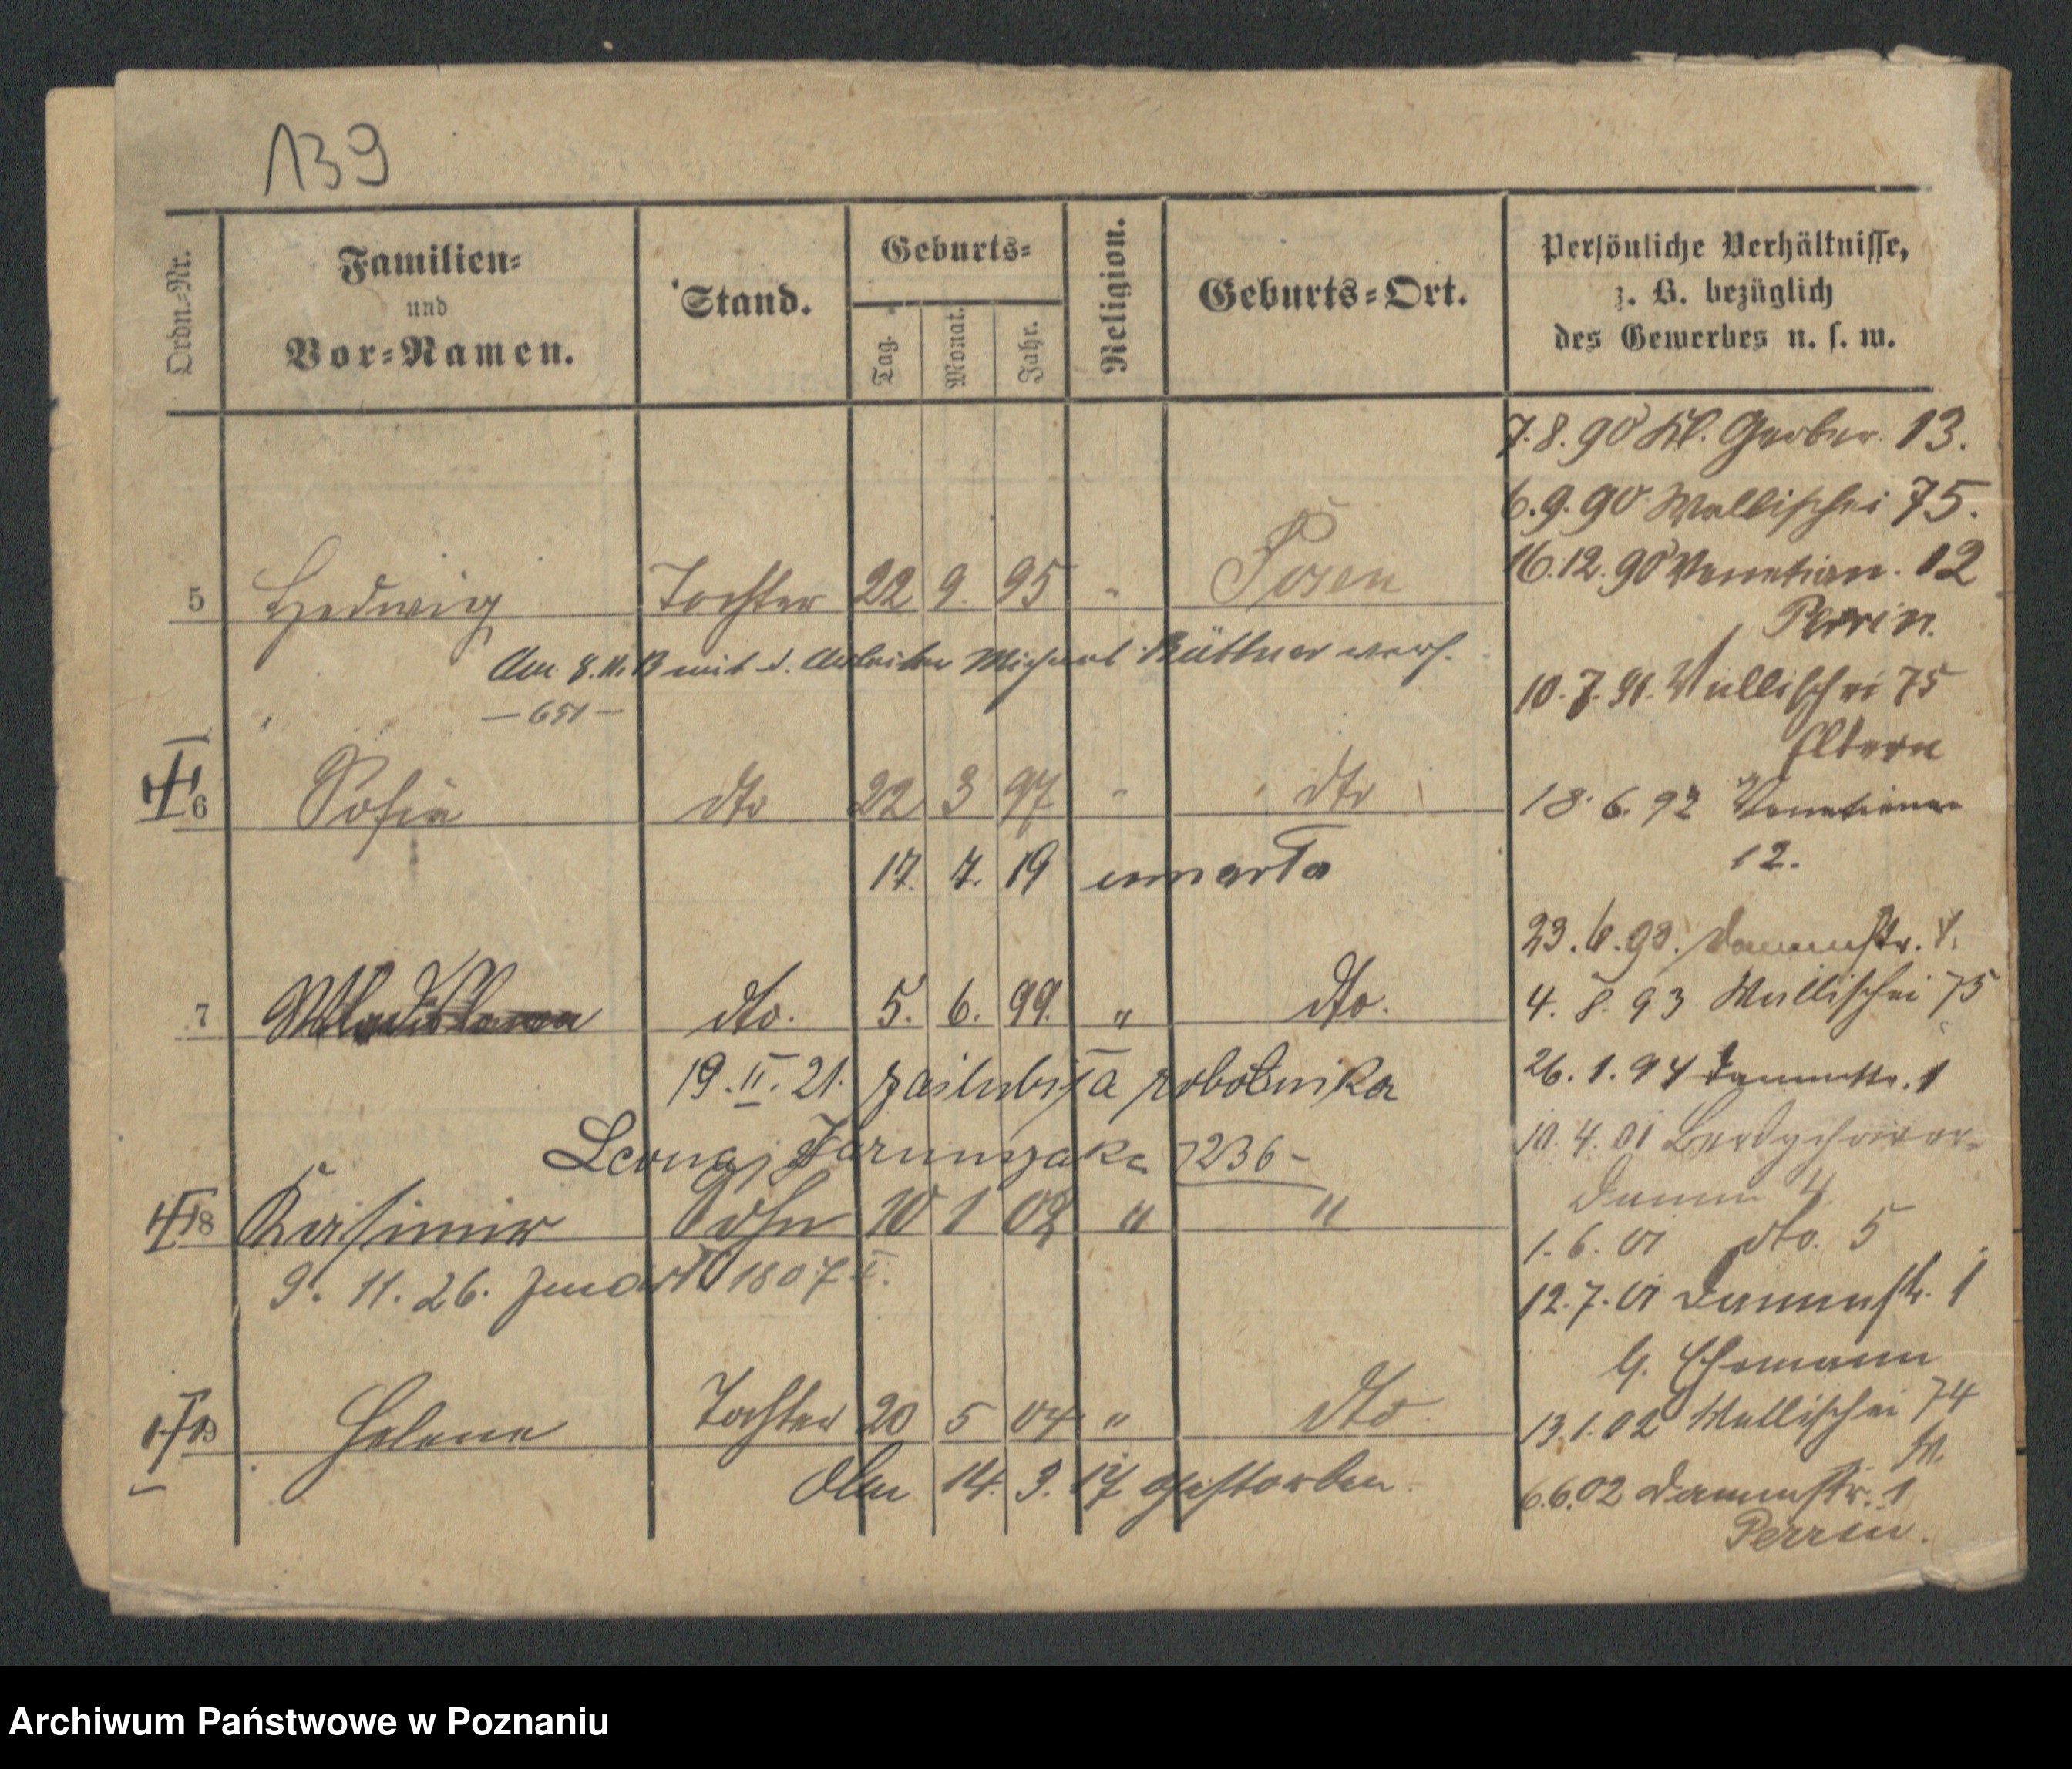 139
Ordn.=Nr.
Familien=
und
Vor=Namen.
Stand.
Geburts=
Tag.
Monat.
Jahr.
Religion.
Geburts=Ort.
Persönliche Verhältnisse,
z. B. bezüglich
des Gewerbes u. s. w.
7. 8. 90 Kl. Gerber. 13.
6. 9. 90 Wallischei 75.
16. 12. 90 Venetian. 12
Perrin.
10. 7. 91. Wallischei 75
Eltern
18. 6. 92 Venetianer
12.
23. 6. 93. Dammstr. 1.
4. 8. 93 Wallischei 75
26. 1. 94 Dammstr. 1
10. 4. 01 Berdychower=
Damm 4
1. 6. 01 dto. 5
12. 7. 01 Dammstr. 1
b. Ehemann
13. 1. 02 Wallischei 74
6. 6. 02 Dammstr. 1
Perrin.
5 Hedwig Tochter 22 9. 95 " Posen
Am 8. 11. 13 mit d. Arbeiter Michael Büttner verh.
— 651 —
6 Sofia dto 22 3 97 " dto
17. 7. 19 umarła
7 Wladislawa dto. 5. 6. 99. " dto.
19. II. 21. zaślubiła robotnika
Leona 7236 –
8 Kasimir Sohn 10 1 02 " "
9. 11. 26. zmarł 1807
9 Helene Tochter 20 5 04 " dto.
Am 14. 3. 17 gestorben.
Archiwum Państwowe w Poznaniu